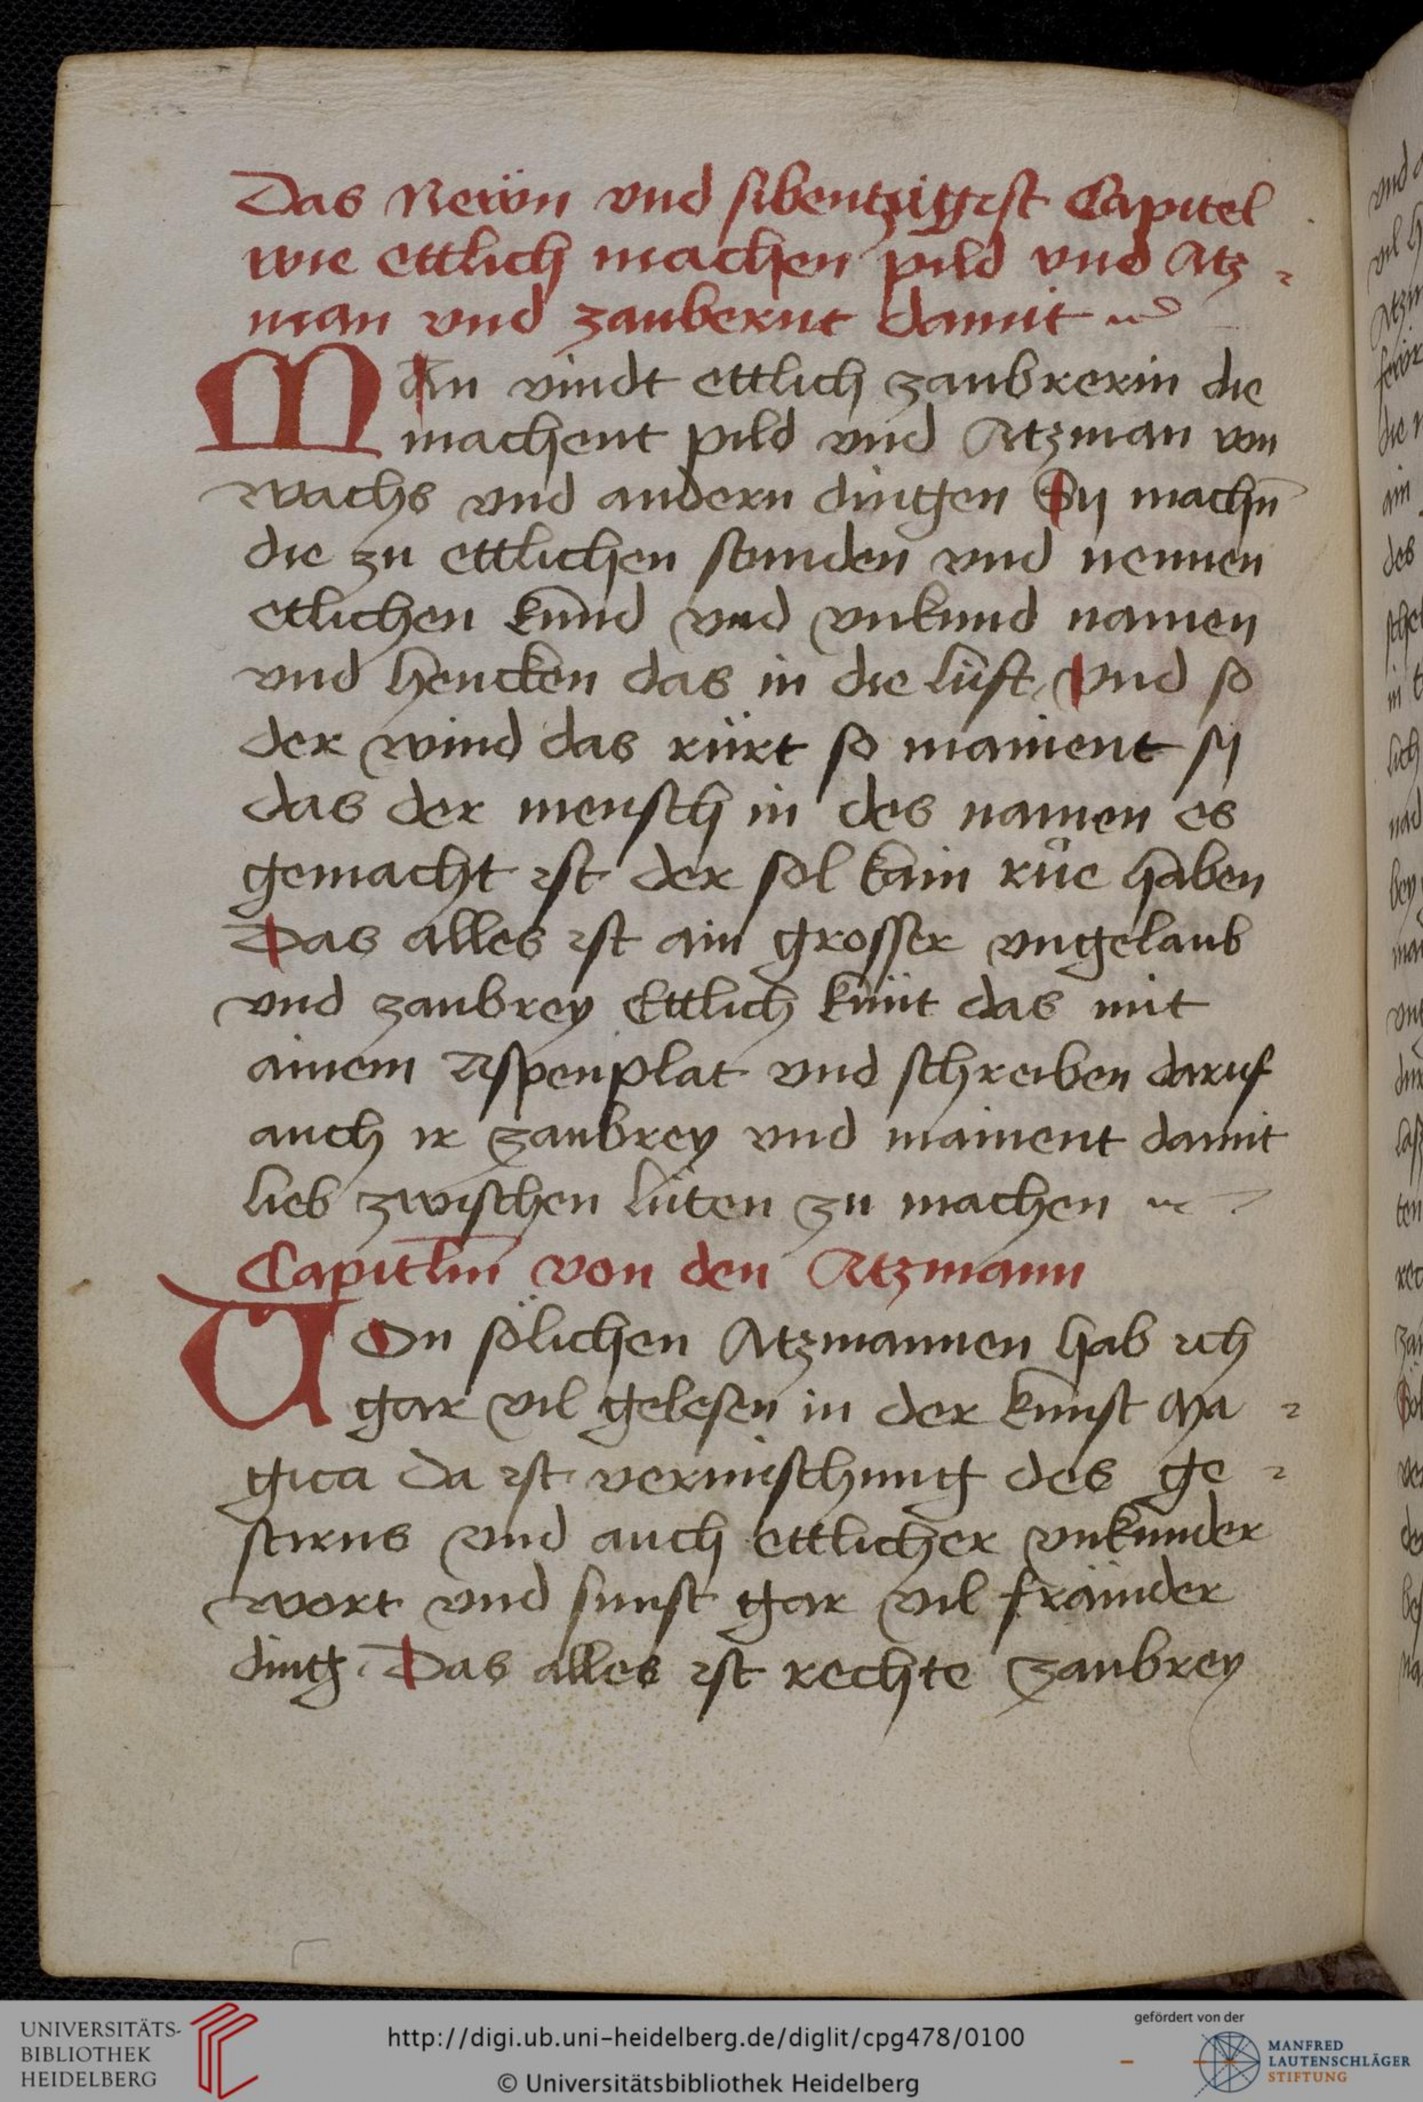 Das Newn vnd sibentzigist Capitel
wie ettlich machen pild vnd Atz⸗
man vnd zaubernt damit
MAn vindt ettlich zaubrerin die
machent pild vnd Atzman von
wachs vnd andern dingen Sy machn̄
die zu ettlichen stunden vnd nennen
etlichen kund vnd vnkund namen
vnd hencken das in die lüft Vnd so
der wind das rürt so mainent sy
das der mensch in des namen es
gemacht ist der sol kain rüe haben
Das alles ist ain grosser vngelaub
vnd zaubrey Ettlich künt das mit
ainem Aspenplat vnd schreiben daruf
auch ir zaubrey vnd mainent damit
lieb zwischen lüten zu machen
Capitlm̄ von den Atzmann
VOn sölichen Atzmannen hab ich
gar vil gelesen in der kunst Ma⸗
gica Da ist vermischung des ge⸗
stirns vnd auch ettlicher vnkunder
wort vnd sunst gar vil främder
ding. Das alles ist rechte zaubrey
UNIVERSITÄTS-
BIBLIOTHEK
HEIDELBERG
http://digi.ub.uni-heidelberg.de/diglit/cpg478/0100
© Universitätsbibliothek Heidelberg
gefördert von der
MANFRED
LAUTENSCHLÄGER
STIFTUNG